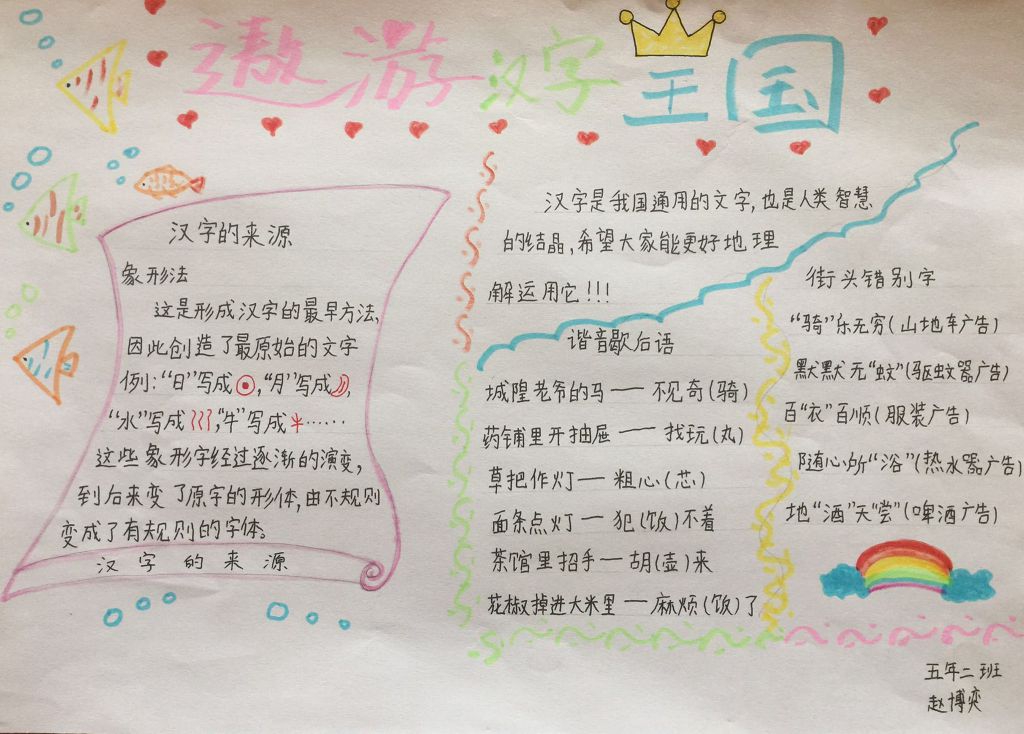 遨游汉字王国
汉字的来源
象形法
这是形成汉字的最早方法,
因此创造了最原始的文字
例:“日”写成 ,“月”写成 ,
“水”写成 ,“牛”写成 ……
这些象形字经过逐渐的演变,
到后来变了原字的形体,由不规则
变成了有规则的字体。
汉字的来源
汉字是我国通用的文字,也是人类智慧
的结晶,希望大家能更好地理
解运用它!!!
谐音歇后语
城隍老爷的马——不见奇(骑)
药铺里开抽屉——找玩(丸)
草把作灯——粗心(芯)
面条点灯——犯(饭)不着
茶馆里招手——胡(壶)来
花椒掉进大米里——麻烦(饭)了
街头错别字
“骑”乐无穷(山地车广告)
默默无“蚊”(驱蚊器广告)
百“衣”百顺(服装广告)
随心所“浴”(热水器广告)
地“酒”天“尝”(啤酒广告)
五年二班
赵博奕